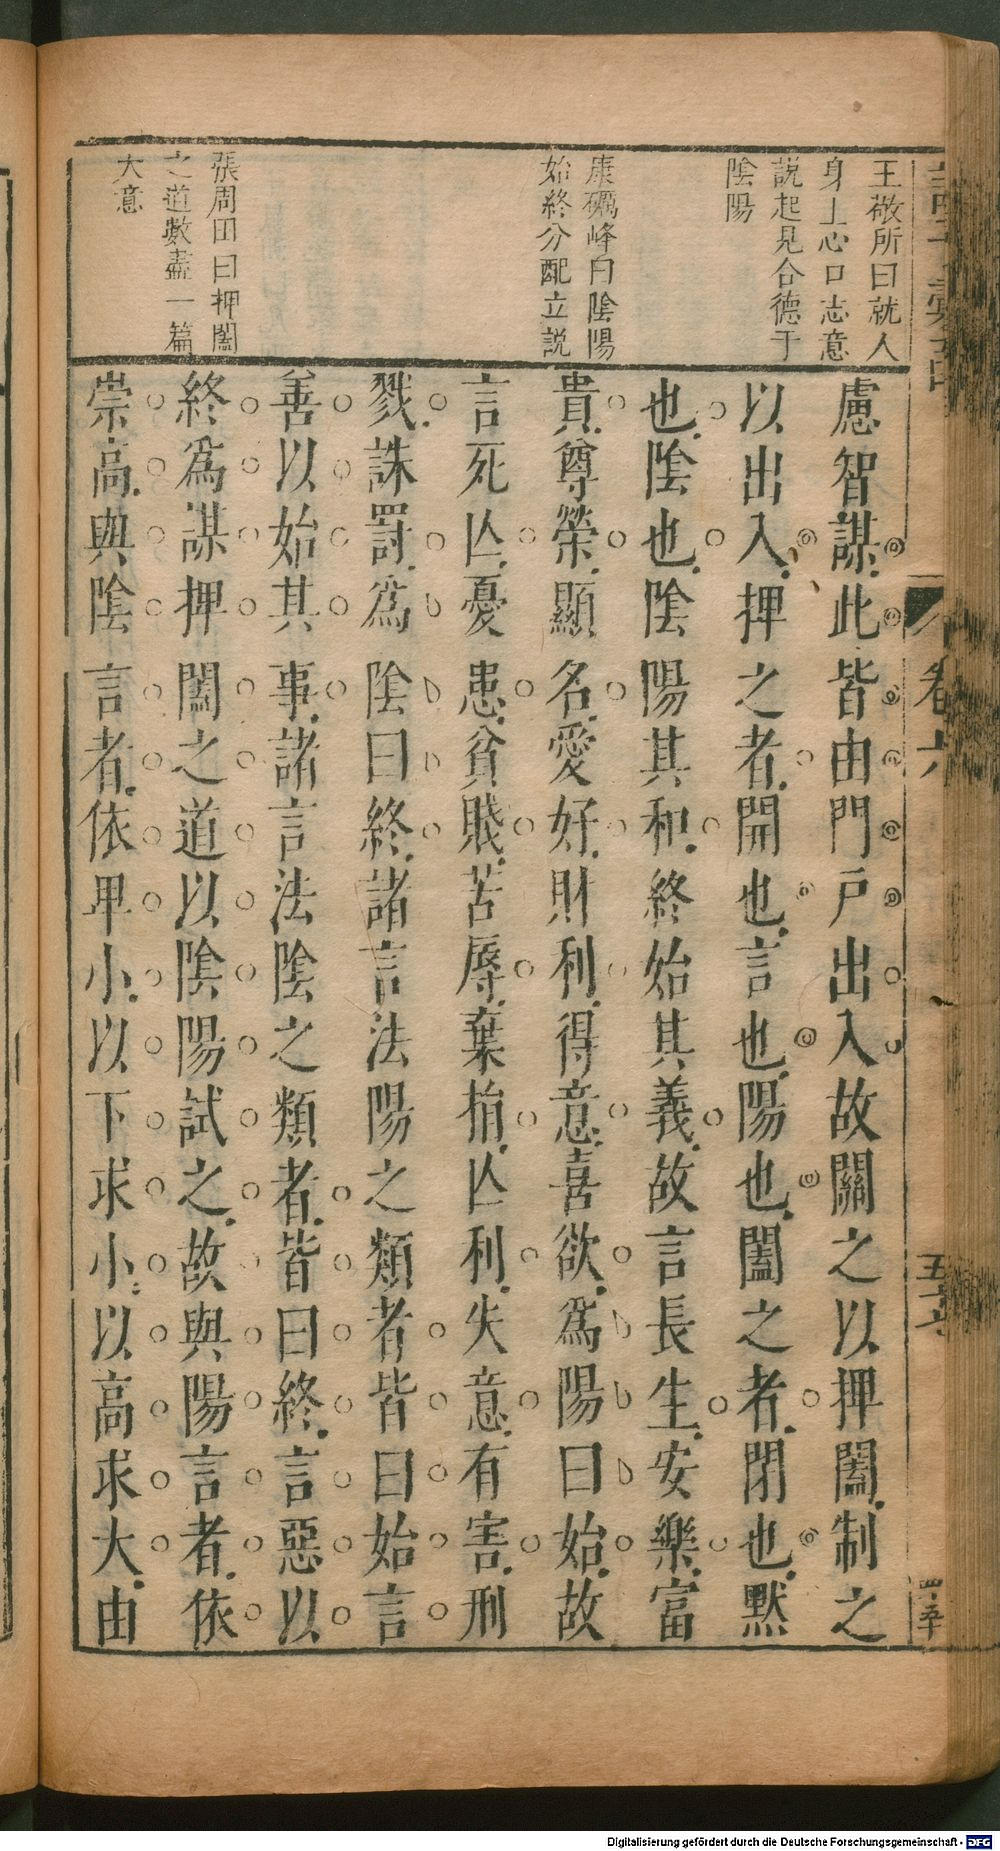 王敬所曰就人
身上心口志意
說起見合德于
陰陽
康礪峰曰陰陽
始終分配立說
張周田曰押闔
之道數盡一篇
大意
慮智謀此皆由門戶出入故關之以押闔制之
以出入押之者開也言也陽也闔之者閉也默
也陰也陰陽其和終始其義故言長生安樂富
貴尊榮顯名愛好財利得意喜欲爲陽曰始故
言死亾憂患貧賤苦辱棄捐亾利失意有害刑
戮誅罰爲陰曰終諸言法陽之類者皆曰始言
善以始其事諸言法陰之類者皆曰終言惡以
終爲謀押闔之道以陰陽試之故與陽言者依
崇高與陰言者依卑小以下求小以高求大由
卷六
五十六
Digitalisierung gefördert durch die Deutsche Forschungsgemeinschaft - DFG